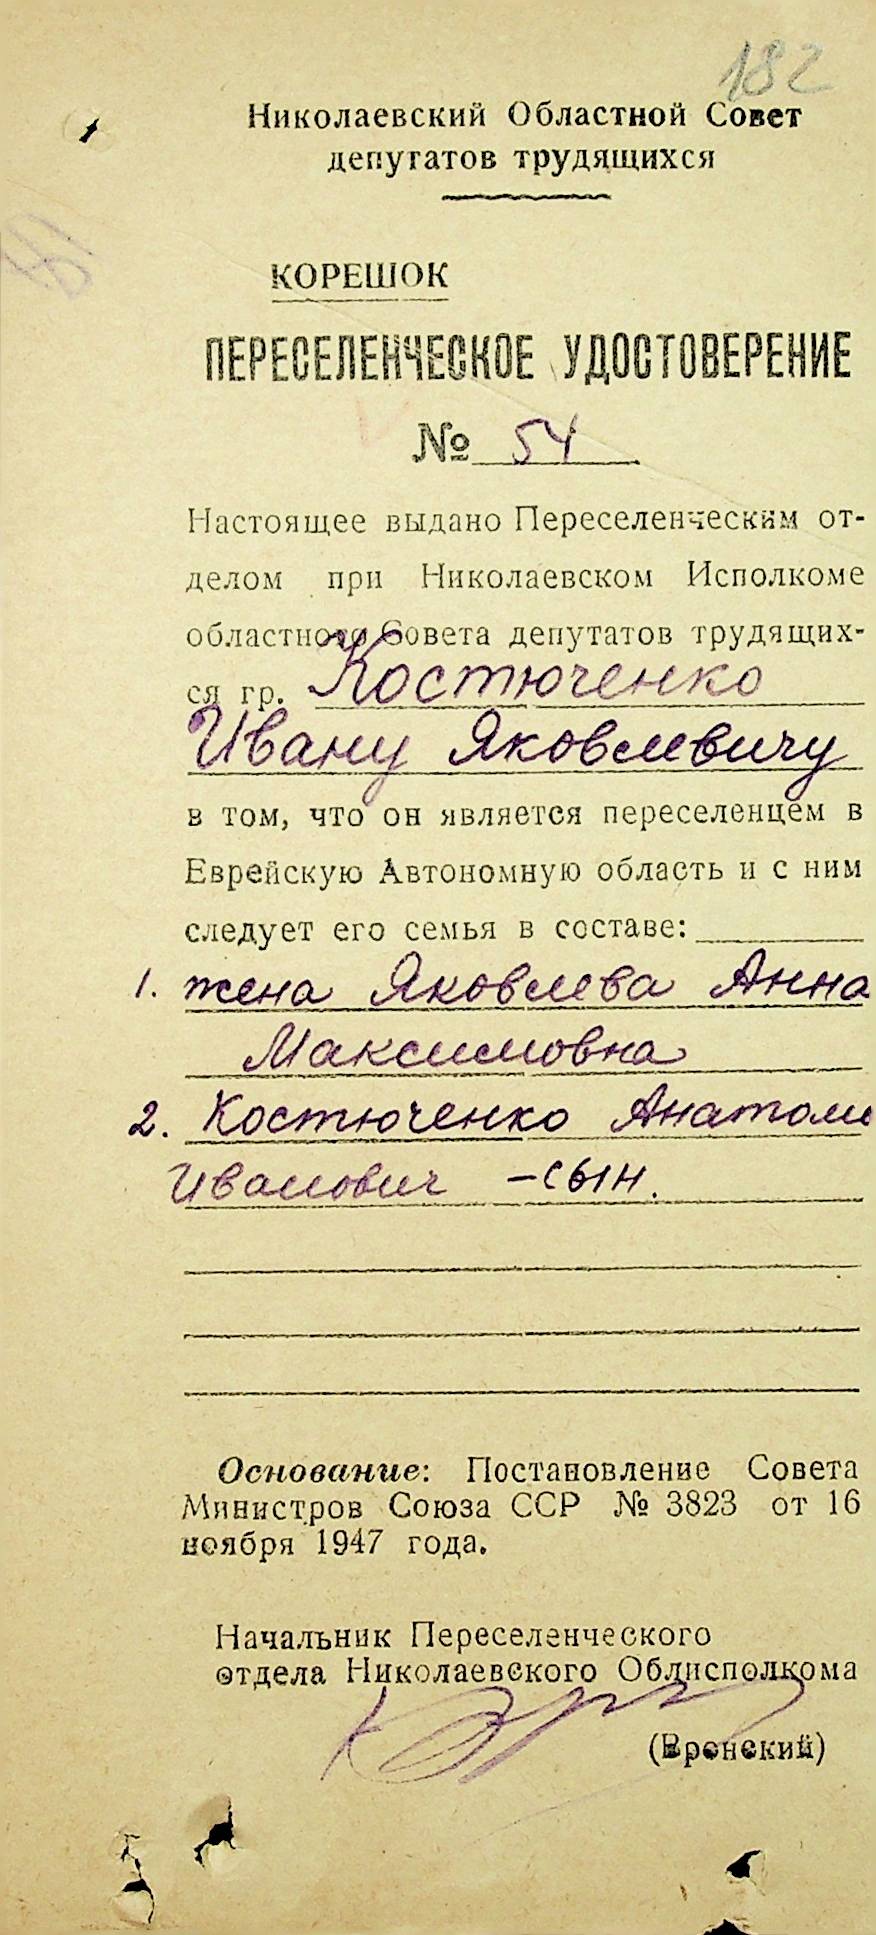 182
Николаевский Областной Совет
депутатов трудящихся
КОРЕШОК
ПЕРЕСЕЛЕНЧЕСКОЕ УДОСТОВЕРЕНИЕ
№ 54
Настоящее выдано Переселенческим от-
делом при Николаевском Исполкоме
областного Совета депутатов трудящих-
ся гр. Костюченко
Ивану Яковлевичу
в том, что он является переселенцем в
Еврейскую Автономную область и с ним
следует его семья в составе:
1. жена Яковлева Анна
Максимовна
2. Костюченко Анатоли
Иванович – сын.
Основание: Постановление Совета
Министров Союза ССР № 3823 от 16
ноября 1947 года.
Начальник Переселенческого
отдела Николаевского Облисполкома
(Вронский)